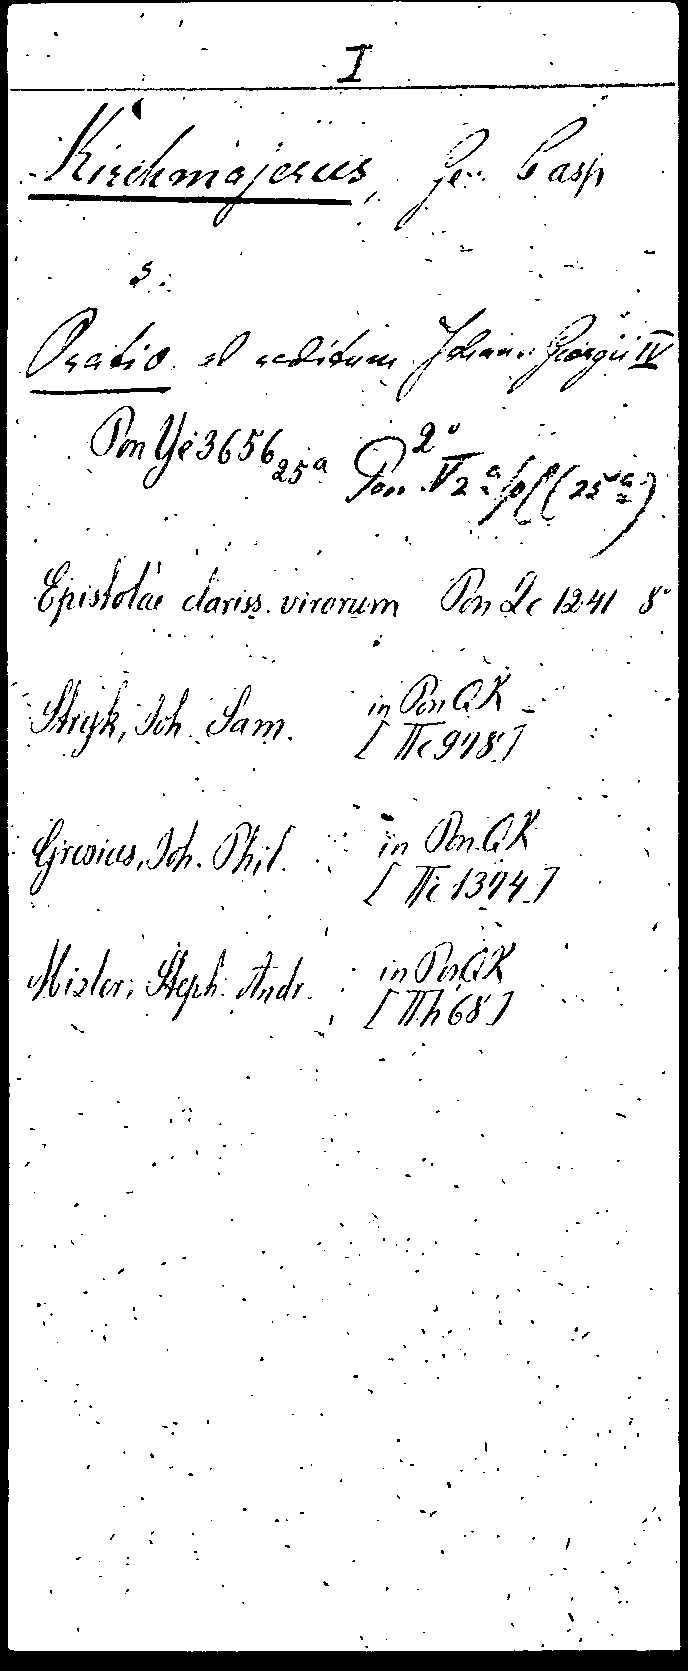 I
Kirchmajerus, Ge. Casp
s.
Oratio ad reditum Johann. Georgii IV
Pon Ye 3656 25a 2°
Pon. V 2a fol (25a)
Epistolae clariss. virorum Pon Zc 1241 8°
Stryk, Joh. Sam. in Pon QK
[IIc 978]
Gresius, Joh. Phil. in Pon QK
[IIi 1374]
Misler, Steph. Andr. in Pon QK
[IIh 68]